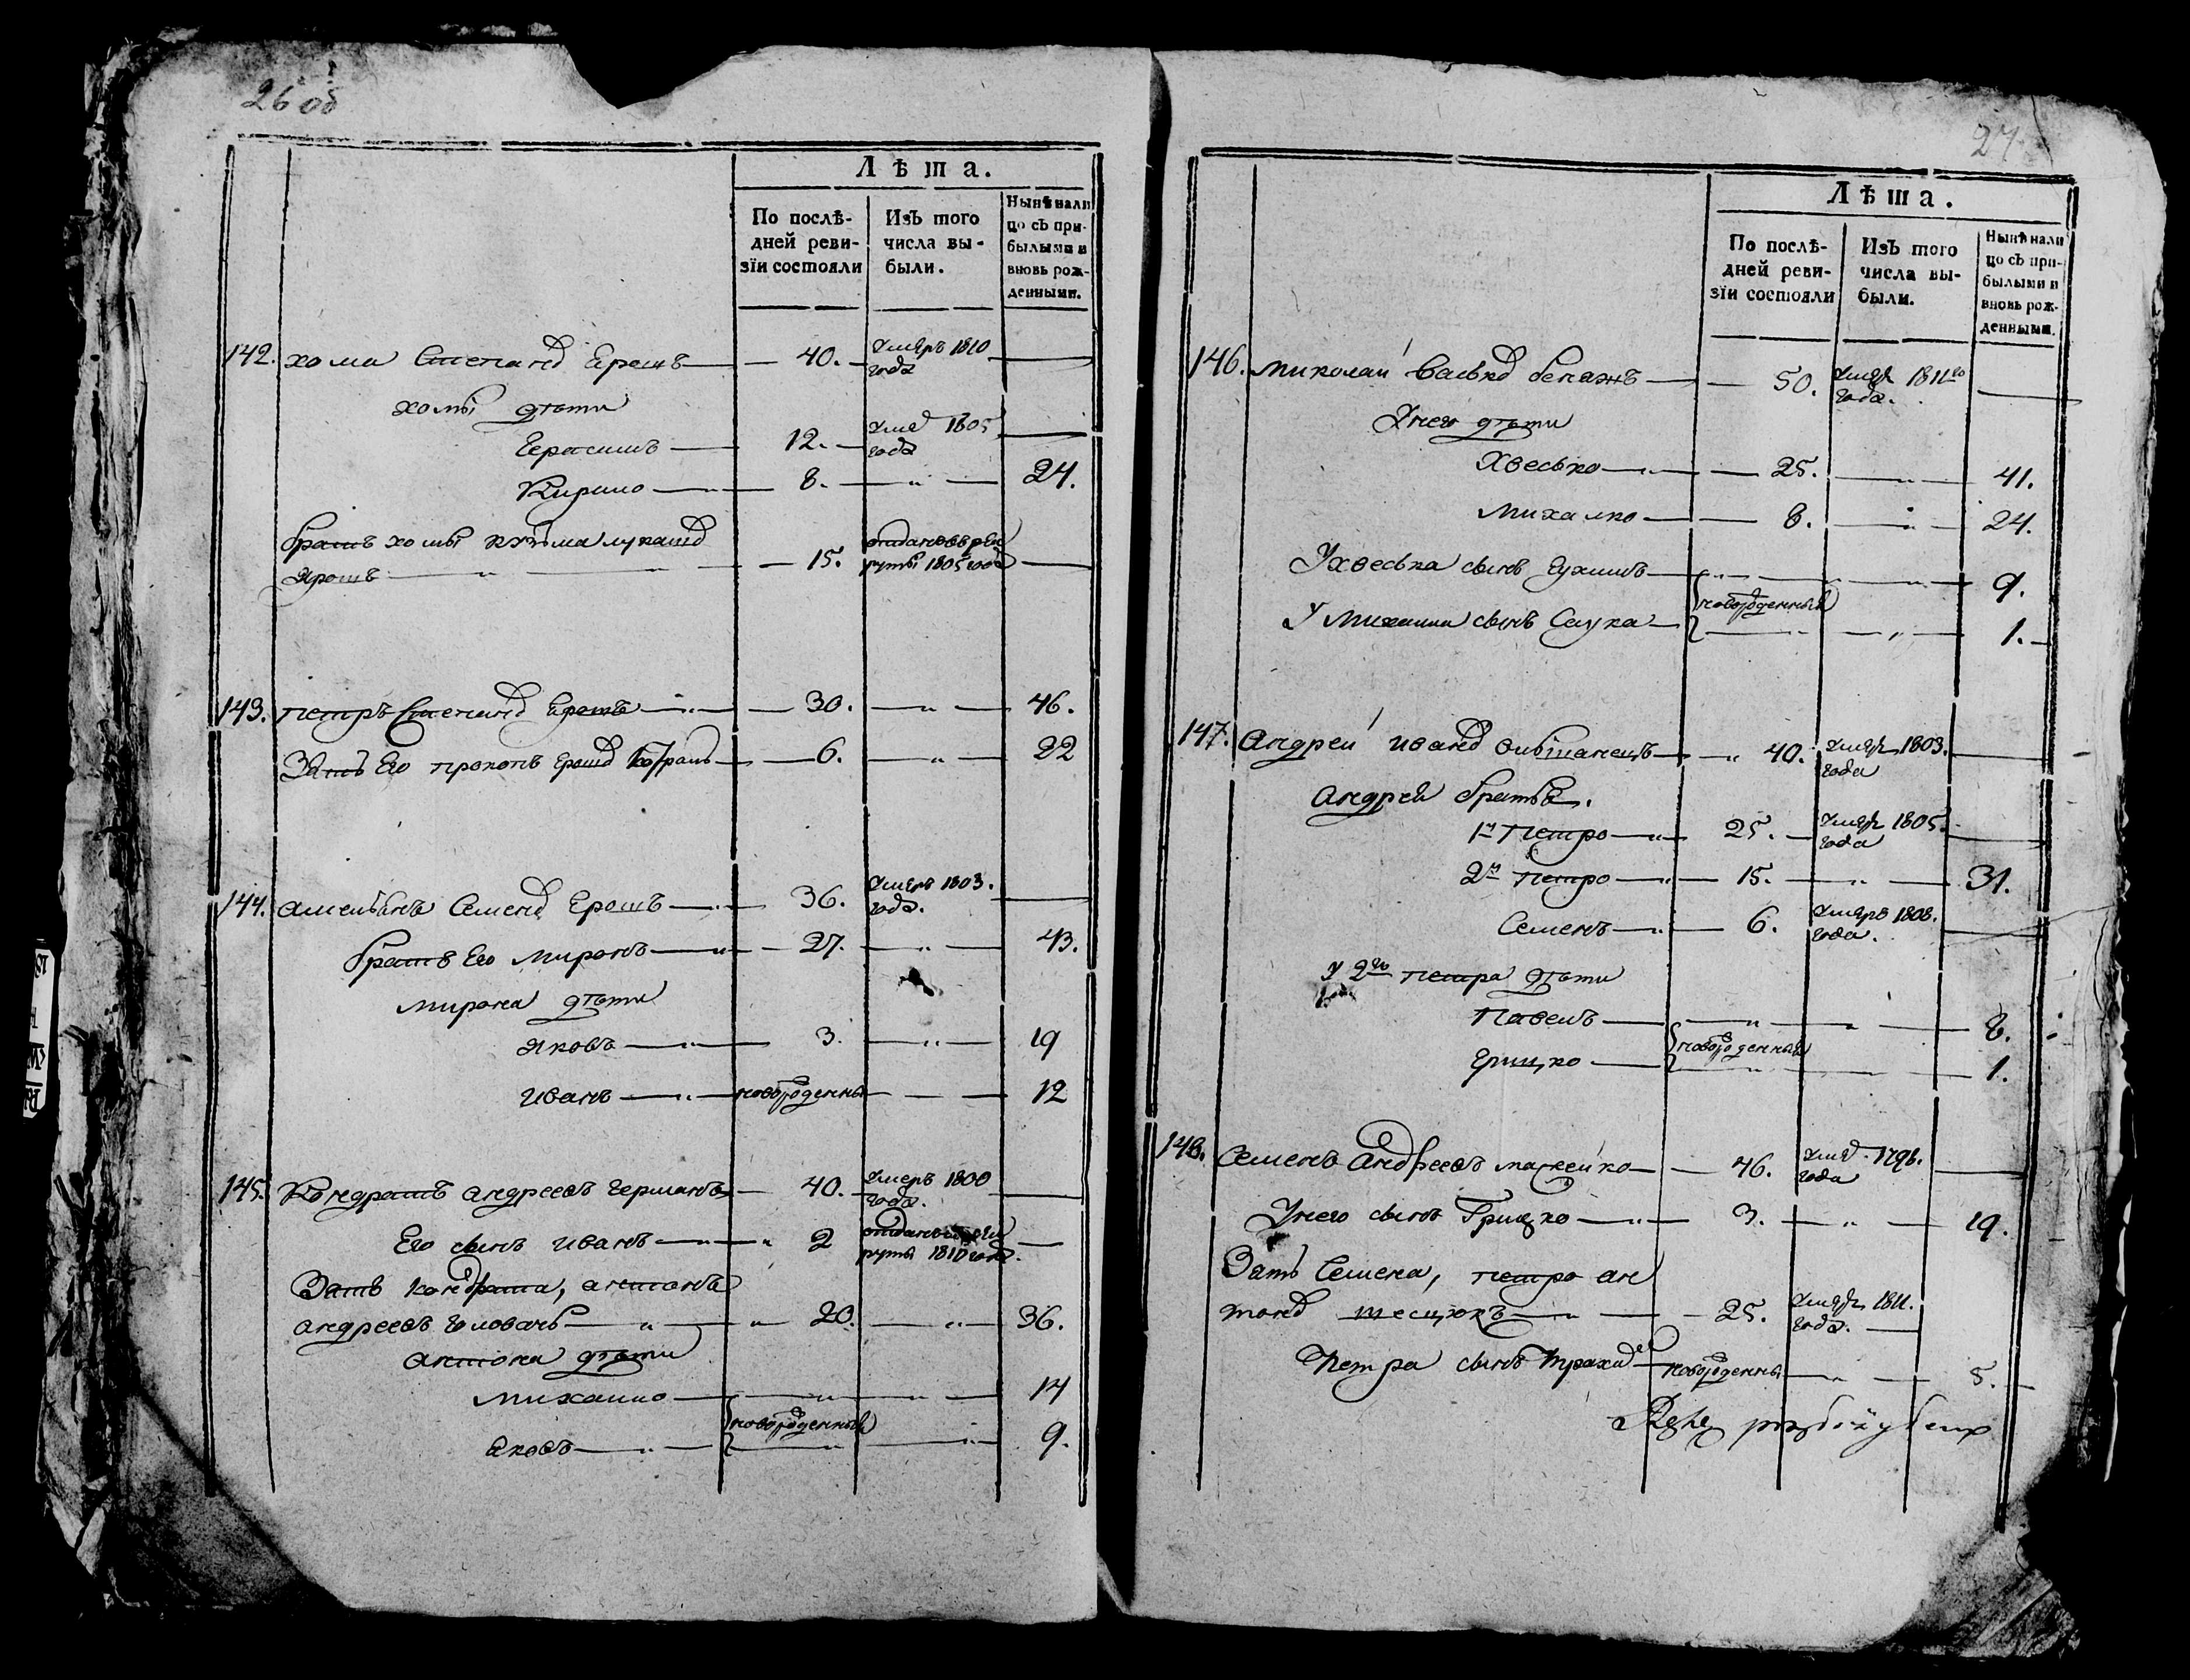 26 об
Лѣта.
По послѣ-
дней реви-
зїи состояли
Изъ того
числа вы-
были.
Нынѣ нали
цо съ при-
былыми и
вновь рож-
денными.
142. хома Степанд Ерошъ 40. Умеръ 1810
года
хомы дѣти
Герасимъ 12. Умер 1805
года
Кирило 8. 24.
братъ хомы кузма лукашд
Ярошъ 15. отданъ въ рек
руты 1805 года
143. петръ Степанд Ерошъ 30. 46.
Зять Его прокопъ 6. 22
144. амельянъ Семенд Ерошъ 36. Умеръ 1803.
года.
братъ Его миронъ 27. 43.
мирона дѣти
яковъ 3. 19
иванъ новорожденны 12
145. Кондратъ андреевъ германъ 40. Умеръ 1800
года.
Его сынъ иванъ 2 отданъ въ рек
руты 1810 года.
Зять кондрата, антонъ
андреевъ головачъ 20. 36.
антона дѣти
михаило 14
новорожденныя
яковъ 9.
27.
Лѣта.
По послѣ-
дней реви-
зїи состояли
Изъ того
числа вы-
были.
Нынѣ нали
цо съ при-
былыми и
вновь рож-
денными.
146. миколай васькд 50. Умер 1811го
года.
У него дѣти
Хвесько 25. 41.
михалко 8. 24.
У хвеська сынъ Еухимъ 9.
новорожденныя
У михаила сынъ Саука 1.
147. андрей иванд 40. Умер 1803.
года
андрея братья.
1й петро 25. Умер 1805.
года
2й петро 15. 31.
Семенъ 6. Умеръ 1808.
года.
У 2го петра дѣти
Павелъ 8.
новорожденныя
Грицко 1.
148. Семенъ андреевъ маркейко 46. Умер 1796.
года
У него сынъ Грицко 3. 19.
Зять Семена, петро ан
тонд тесцюкъ 25. Умер 1811.
года.
Петра сынъ новорожденны 5.